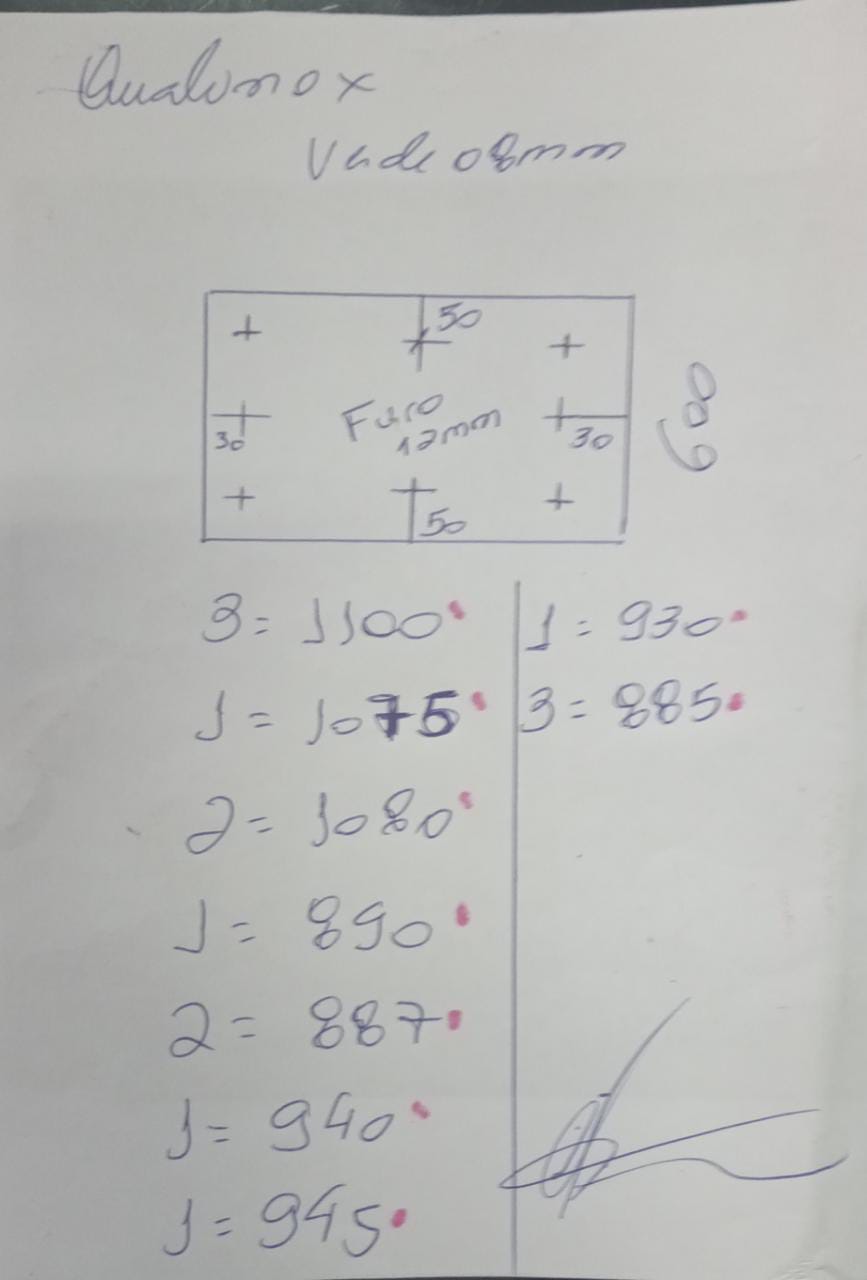 Qualinox
Verde 08mm
50
Furo
12mm
30
30
50
600
3 = 1100
1 = 1075
2 = 1080
1 = 890
2 = 887
1 = 940
1 = 945
1 = 930
3 = 885